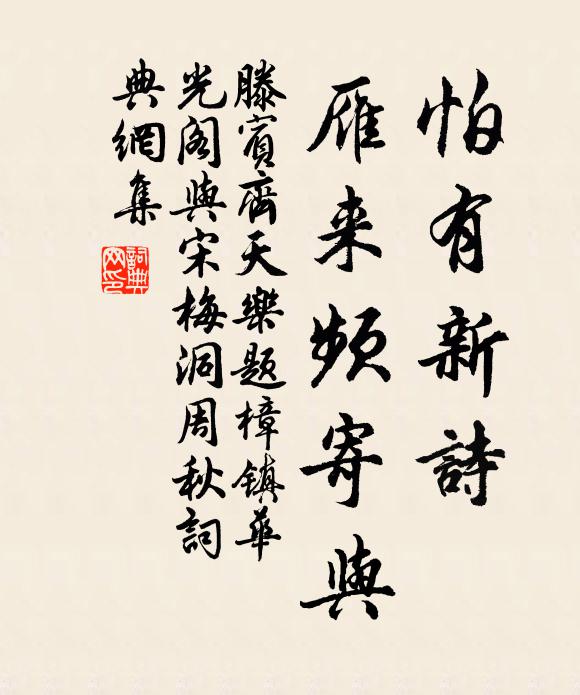 怕有新詩
雁来頻寄與
滕賓齊天樂題樟镇華
光阁與宋梅洞周秋詞
典網集
詞典網印